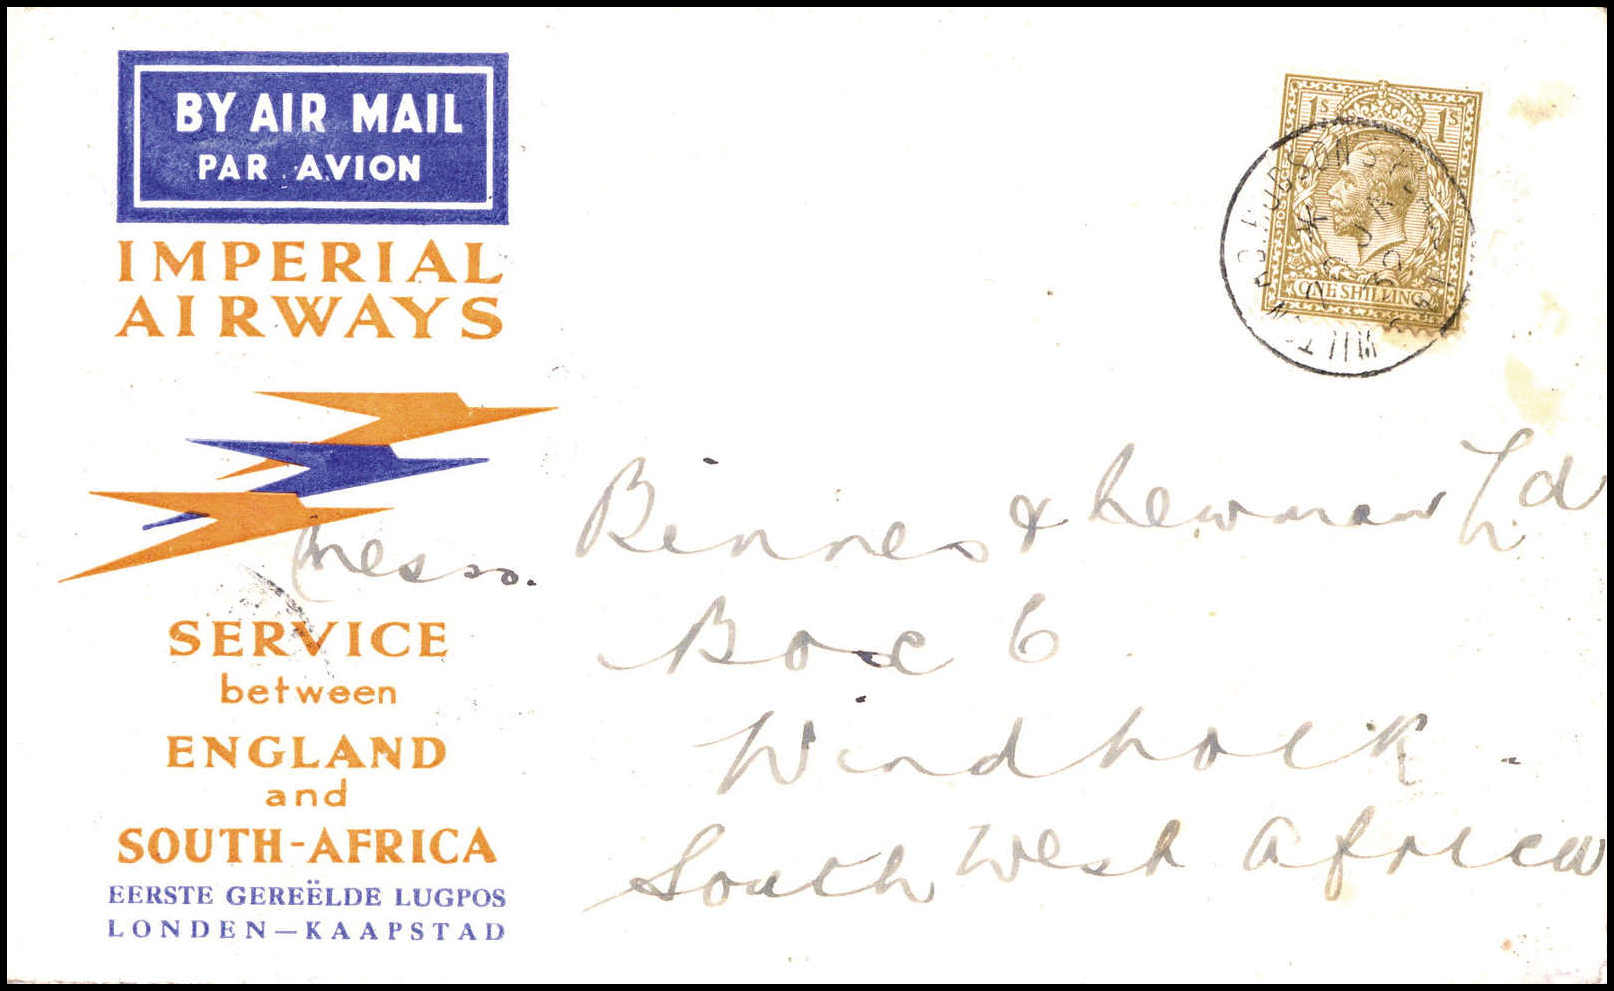 BY AIR MAIL
PAR AVION
IMPERIAL
AIRWAYS
SERVICE
between
ENGLAND
and
SOUTH-AFRICA
EERSTE GEREËLDE LUGPOS
LONDEN—KAAPSTAD
1s 1s
POSTAGE REVENUE
ONE SHILLING
JA
32
Messrs. Binnes & Newman Ld
Box 6
Windhoek.
South West Africa